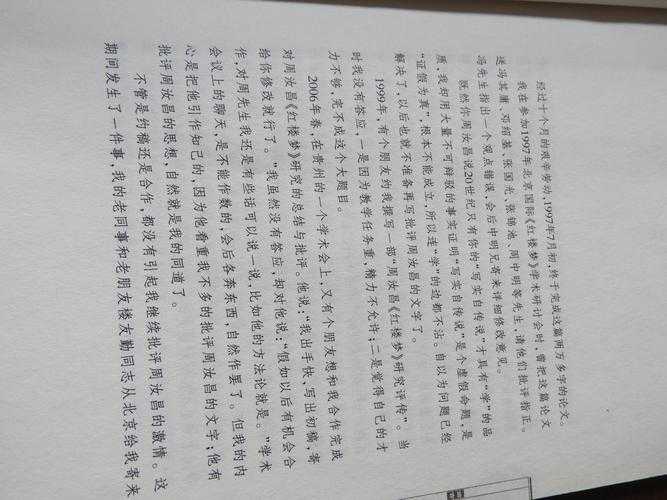 经过十个月的艰辛劳动,1997年7月初,终于完成这篇两万多字的论文。
我在参加1997年北京国际《红楼梦》学术研讨会时,曾把这篇论文
送冯其庸、邓绍基、张国光、张锦池、周中明等先生,请他们批评指正。
冯先生指出一个观点错误,会后中明兄寄来详细修改意见。
既然你周汝昌说20世纪只有你的“写实自传说”才具有“学”的品
质,我却用大量不可辩驳的事实证明“写实自传说”是个虚假命题,是
“证假为真”,根本不能成立,所以连“学”的边都不沾。自以为问题已经
解决了,以后也就不准备再写批评周汝昌的文字了。
1999年,有个朋友约我撰写一部“周汝昌《红楼梦》研究评传”。当
时我没有答应,一是因为教学任务重,精力不允许;二是觉得自己的才
力不够,完不成这个大题目。
2006年春,在贵州的一个学术会上,又有个朋友想和我合作完成
对周汝昌《红楼梦》研究的总结与批评。他说:“我出手快,写出初稿,寄
给你修改就行了。”我虽然没有答应,却对他说:“假如以后有机会合
作,对周先生我还是有些话可以说一说,比如他的方法论就是。”学术
会议上的聊天,是不能作数的,会后各奔东西,自然作罢了。但我的内
心是把他引作知己的,因为他看重我不多的批评周汝昌的文字;他有
批评周汝昌的思想,自然就是我的同道了。
不管是约稿还是合作,都没有引起我继续批评周汝昌的激情。这
期间发生了一件事,我的老同事和老朋友楼友勤同志从北京给我寄来